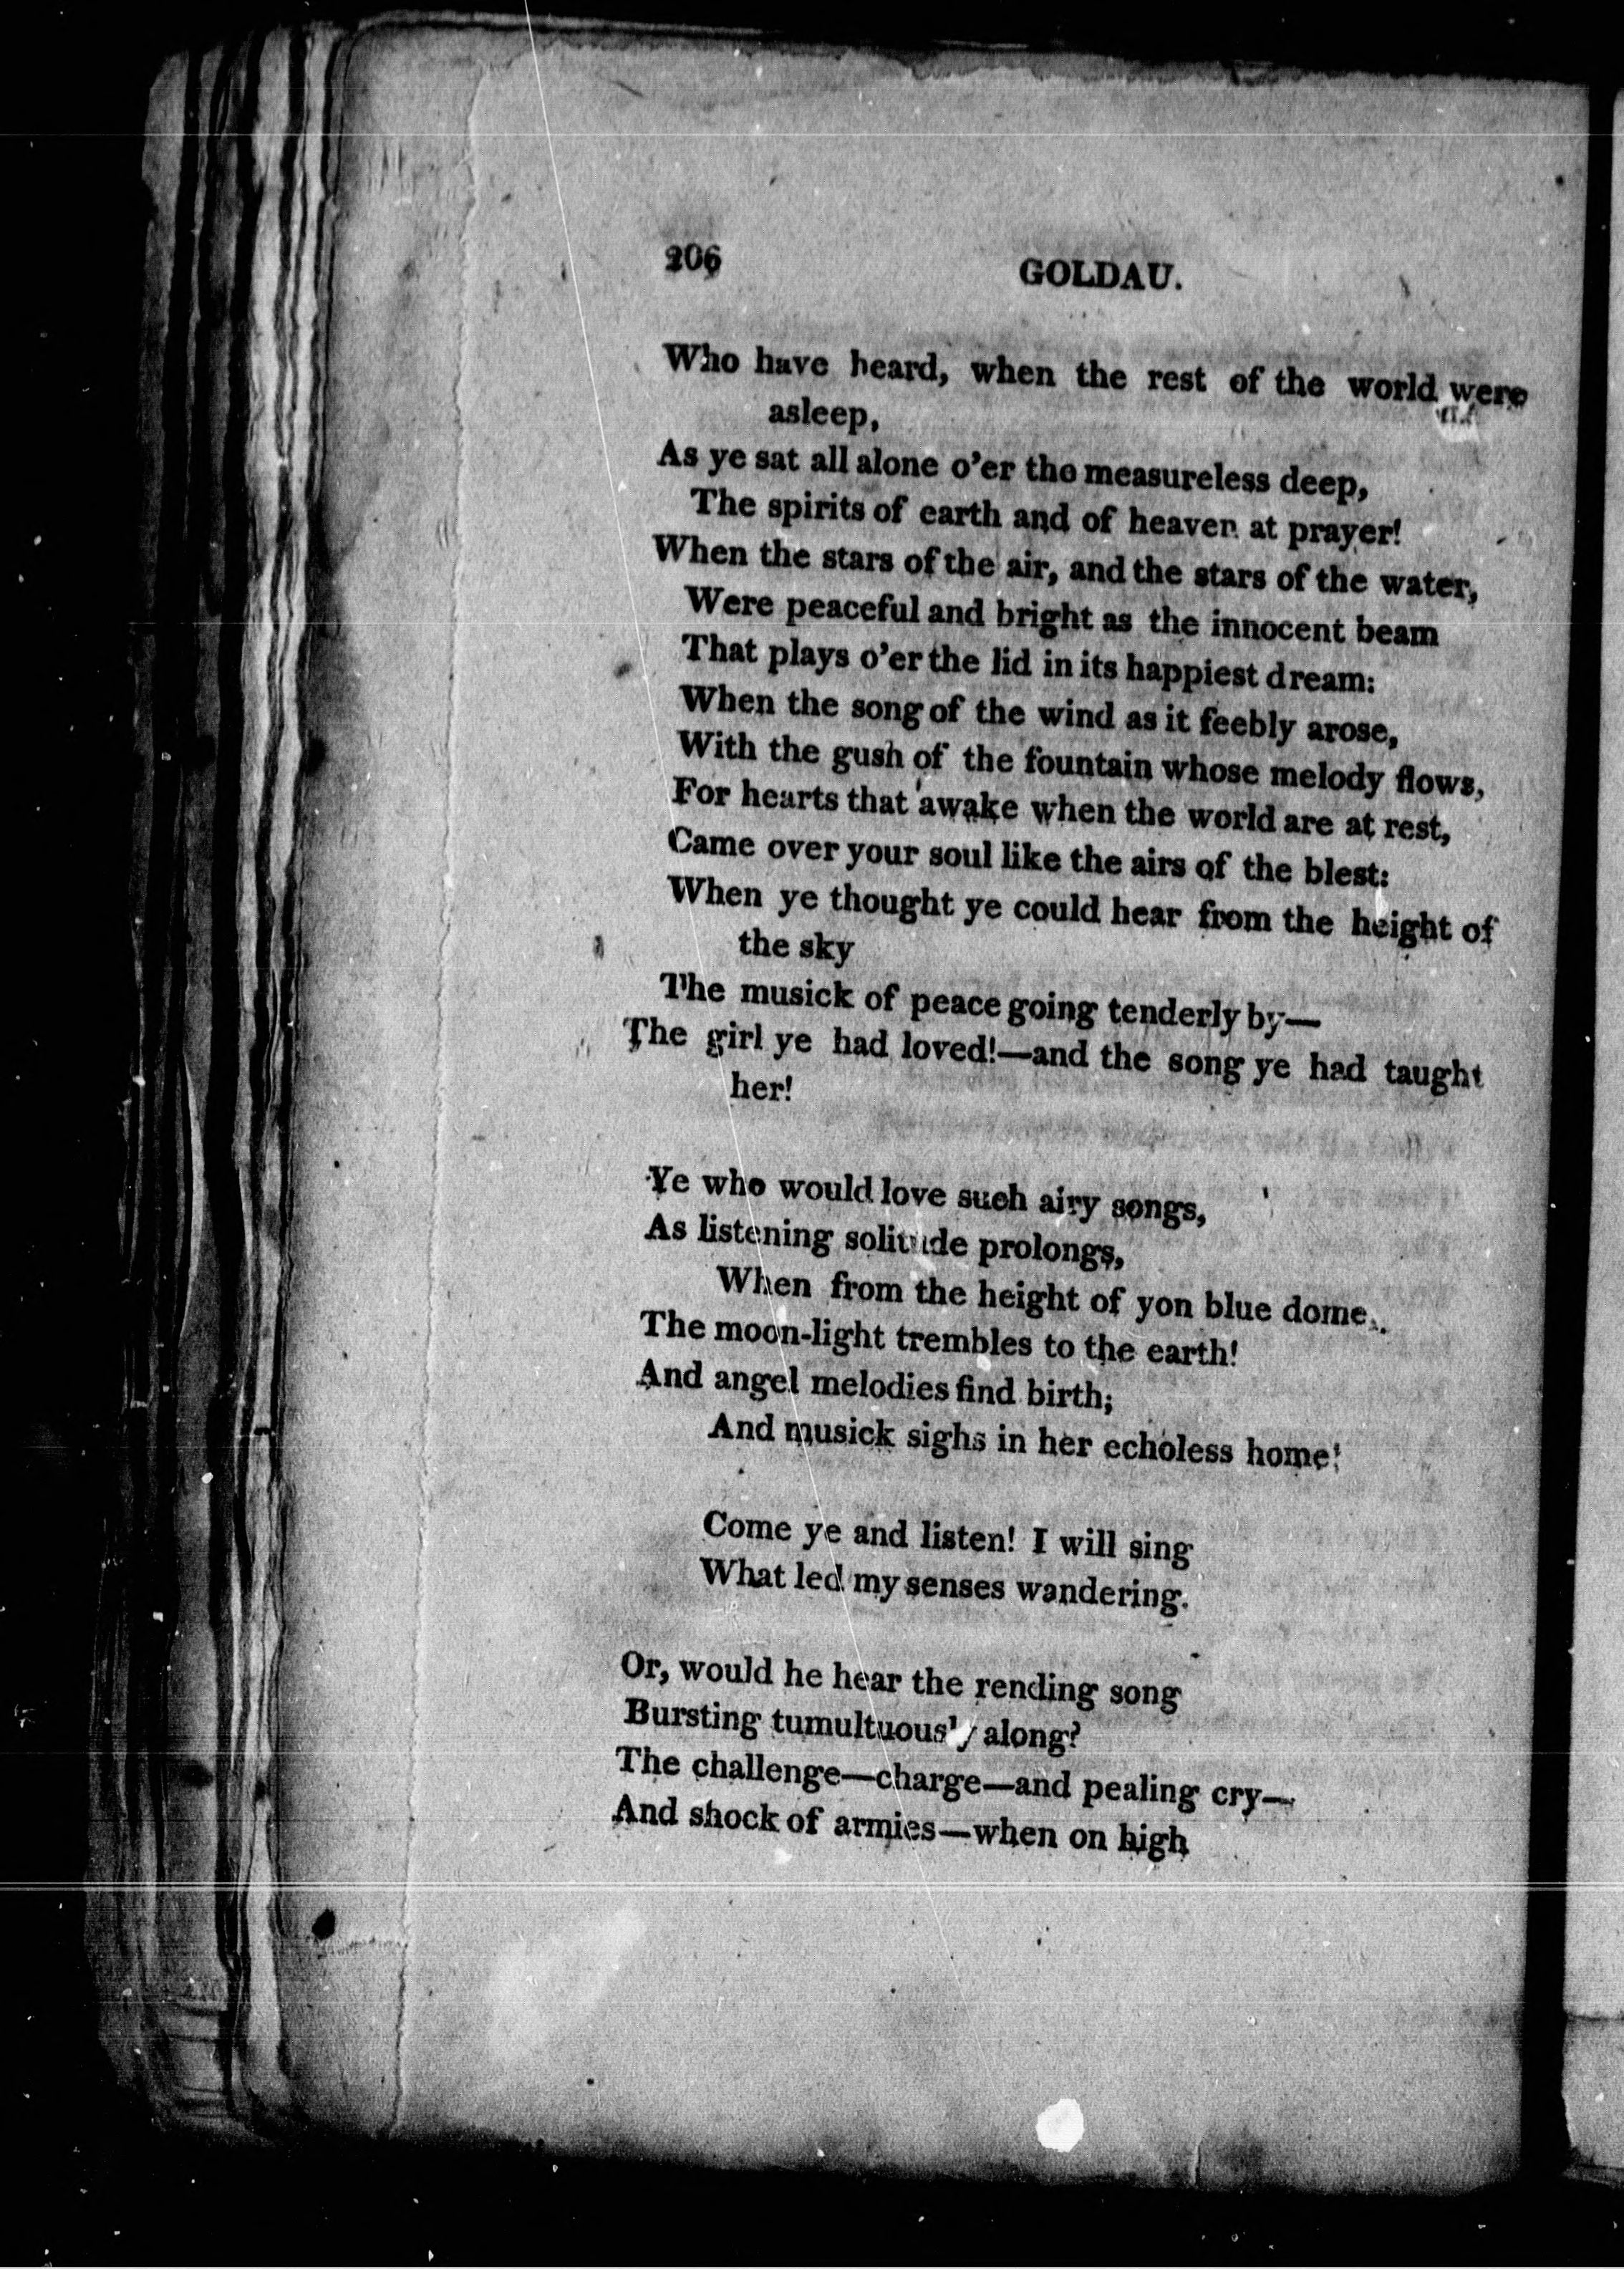 206
GOLDAU.
Who have heard, when the rest of the world were
asleep,
As ye sat all alone o'er the measureless deep,
The spirits of earth and of heaven at prayer!
When the stars of the air, and the stars of the water,
Were peaceful and bright as the innocent beam
That plays o'er the lid in its happiest dream:
When the song of the wind as it feebly arose,
With the gush of the fountain whose melody flows,
For hearts that awake when the world are at rest,
Came over your soul like the airs of the blest:
When ye thought ye could hear from the height of
the sky
The musick of peace going tenderly by—
The girl ye had loved!—and the song ye had taught
her!
Ye who would love such airy songs,
As listening solitude prolongs,
When from the height of yon blue dome,
The moon-light trembles to the earth!
And angel melodies find birth;
And musick sighs in her echoless home!
Come ye and listen! I will sing
What led my senses wandering.
Or, would he hear the rending song
Bursting tumultuously along?
The challenge—charge—and pealing cry—
And shock of armies—when on high